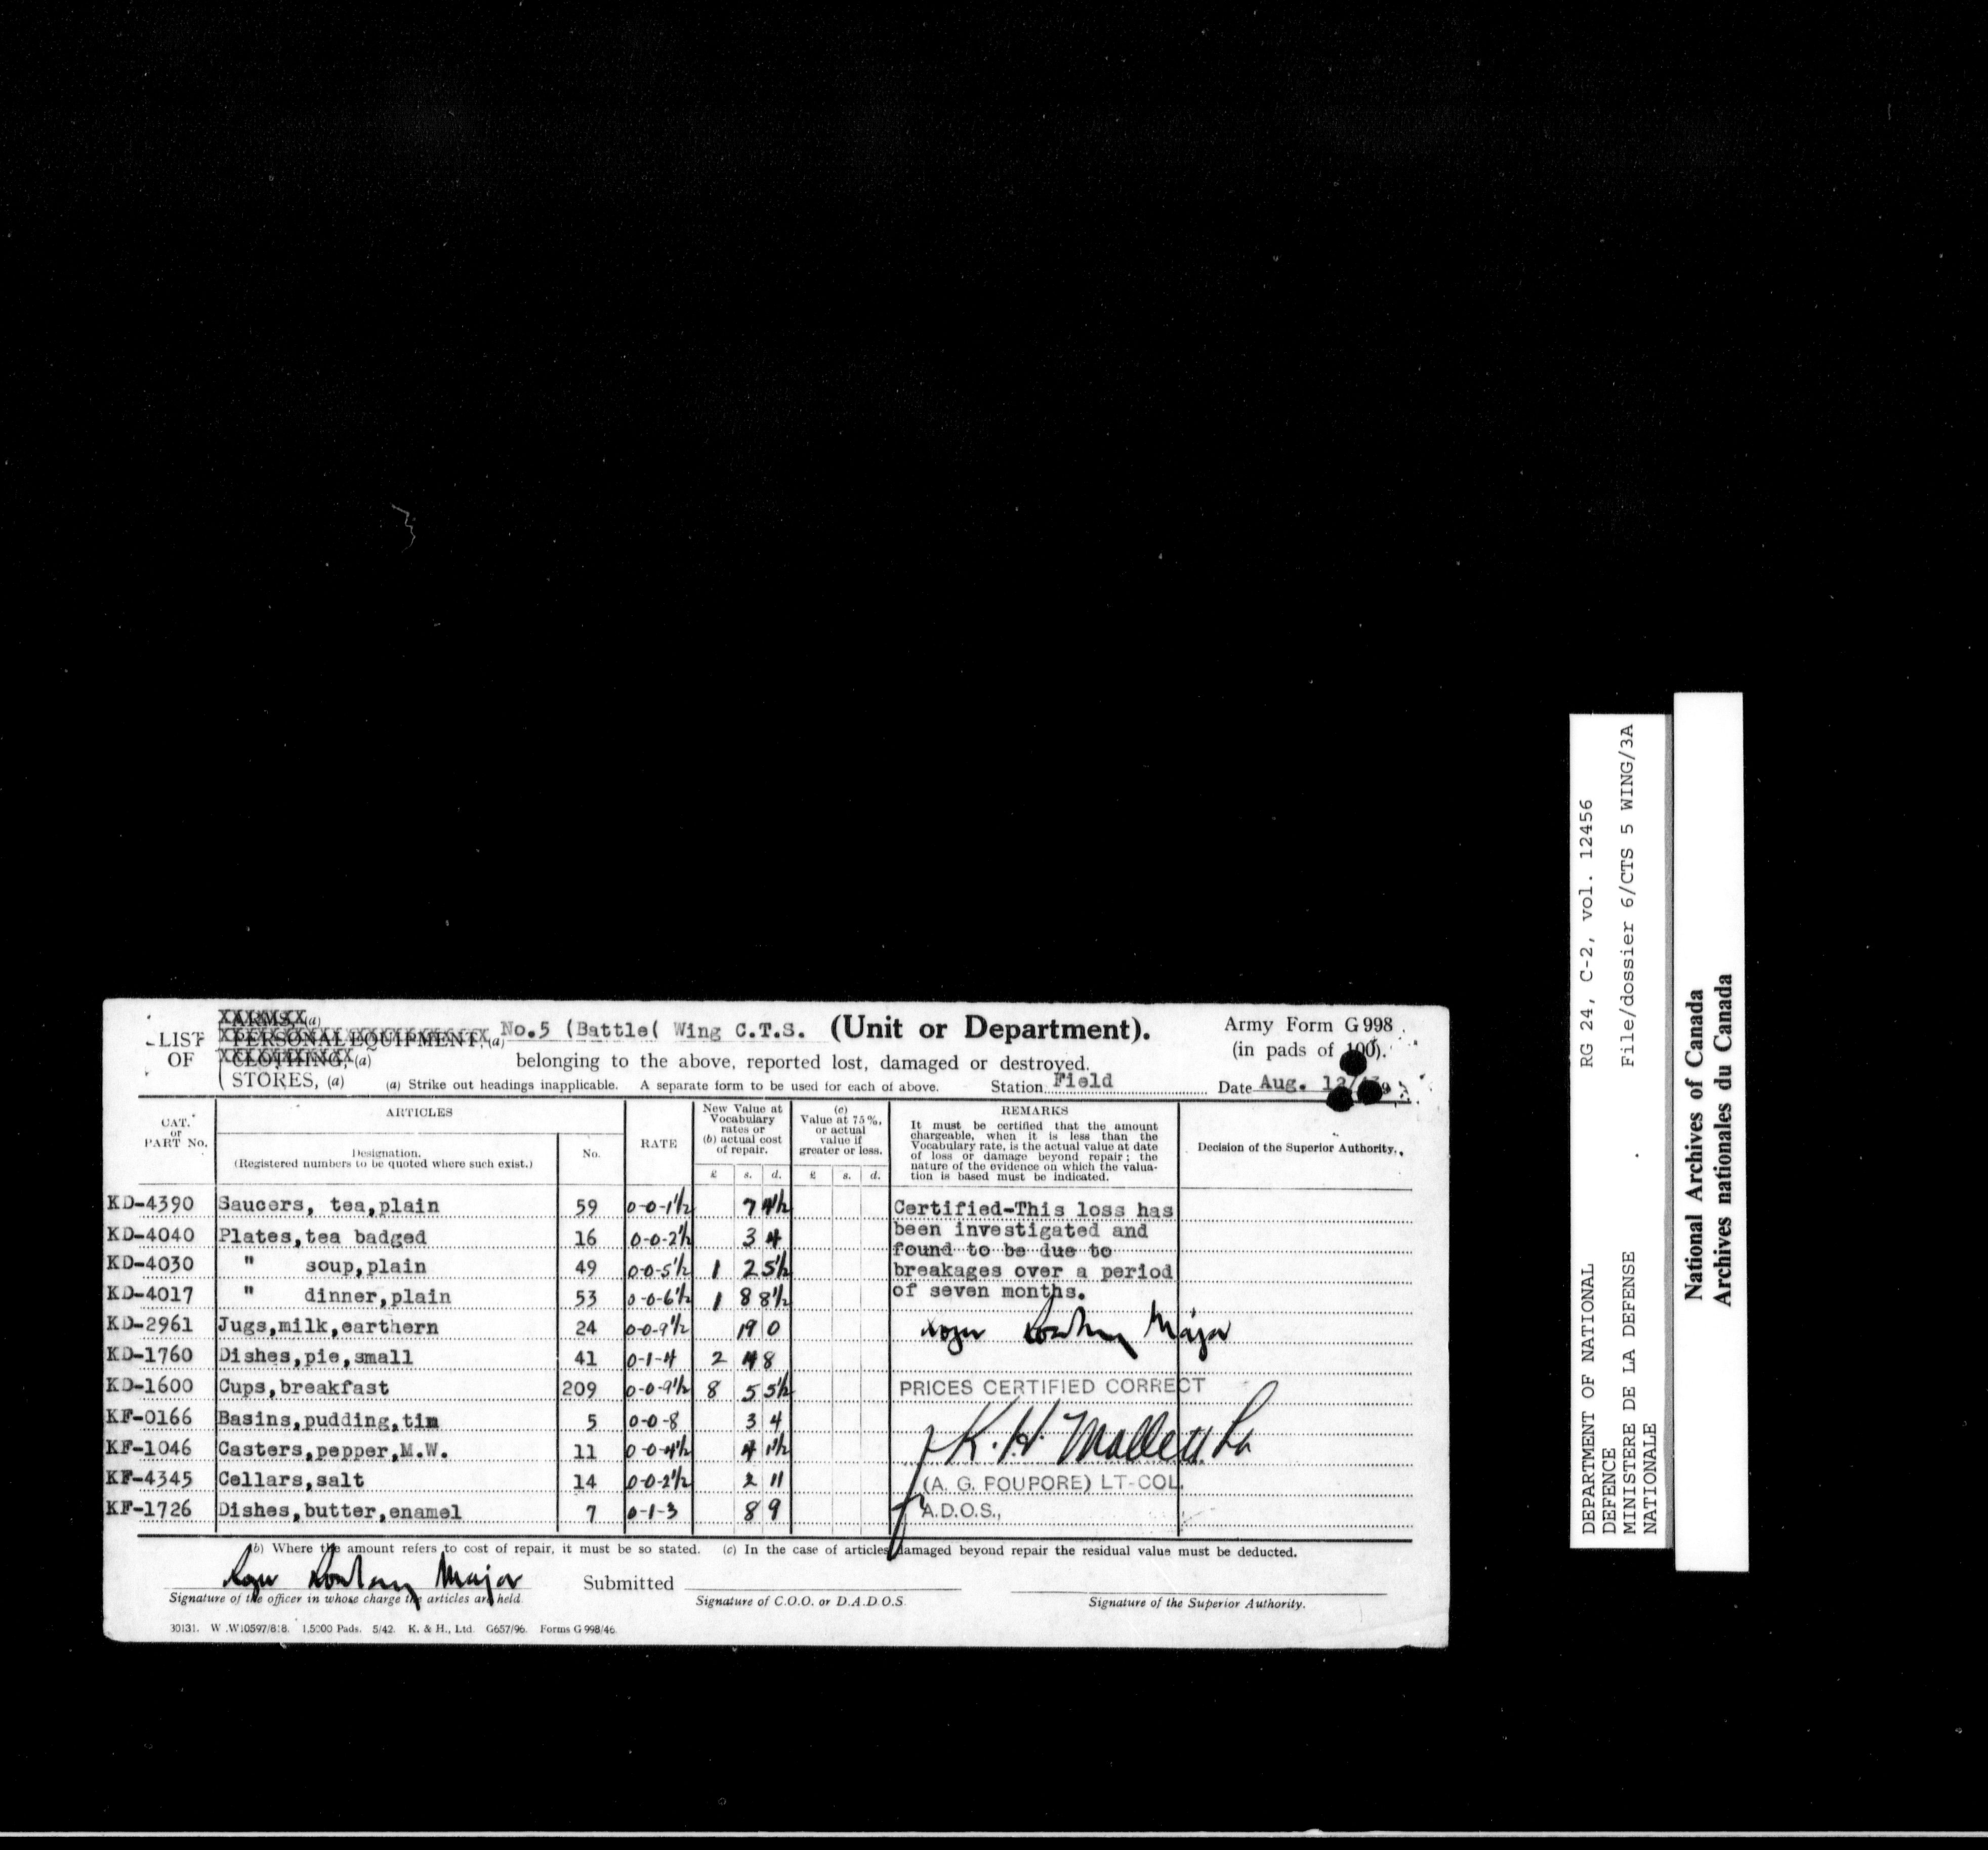 LIST OF
ARMS, (a)
PERSONAL EQUIPMENT, (a)
CLOTHING, (a)
STORES, (a)
No.5 (Battle( Wing C.T.S. (Unit or Department).
belonging to the above, reported lost, damaged or destroyed.
(a) Strike out headings inapplicable. A separate form to be used for each of above.
Station Field
Army Form G 998
(in pads of 100).
Date Aug.
CAT. or PART No.
ARTICLES
Designation.
(Registered numbers to be quoted where such exist.)
No.
RATE
New Value at
Vocabulary
rates or
(b) actual cost
of repair.
£ s. d.
(c)
Value at 75%,
or actual
value if
greater or less.
£ s. d.
REMARKS
It must be certified that the amount
chargeable, when it is less than the
Vocabulary rate, is the actual value at date
of loss or damage beyond repair; the
nature of the evidence on which the valua-
tion is based must be indicated.
Decision of the Superior Authority.
KD-4390 Saucers, tea,plain 59 0-0-1½ 7 4½
KD-4040 Plates,tea badged 16 0-0-2½ 3 4
KD-4030 " soup,plain 49 0-0-5½ 1 2 5½
KD-4017 " dinner,plain 53 0-0-6½ 1 8 8½
KD-2961 Jugs,milk,earthern 24 0-0-9½ 19 0
KD-1760 Dishes,pie,small 41 0-1-4 2 14 8
KD-1600 Cups,breakfast 209 0-0-9½ 8 5 5½
KF-0166 Basins,pudding,tin 5 0-0-8 3 4
KF-1046 Casters,pepper,M.W. 11 0-0-4½ 4 1½
KF-4345 Cellars,salt 14 0-0-2½ 2 11
KF-1726 Dishes,butter,enamel 7 0-1-3 8 9
Certified-This loss has
been investigated and
found to be due to
breakages over a period
of seven months.
Roger Major
PRICES CERTIFIED CORRECT
K. H.
(A. G. POUPORE) LT-COL.
A.D.O.S.,
(b) Where the amount refers to cost of repair, it must be so stated. (c) In the case of articles damaged beyond repair the residual value must be deducted.
Roger Major
Signature of the officer in whose charge the articles are held.
Submitted
Signature of C.O.O. or D.A.D.O.S.
Signature of the Superior Authority.
30131. W .W10597/818. 1,5000 Pads. 5/42. K. & H., Ltd. G657/96. Forms G 998/46.
DEPARTMENT OF NATIONAL RG 24, C-2, vol. 12456
DEFENCE
MINISTERE DE LA DEFENSE File/dossier 6/CTS 5 WING/3A
NATIONALE
National Archives of Canada
Archives nationales du Canada